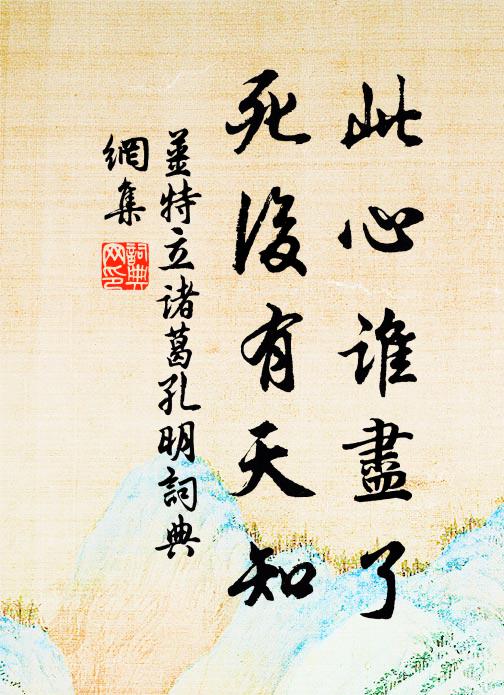 此心誰盡了
死後有天知
薑特立諸葛孔明詞典
網集
詞典
网印